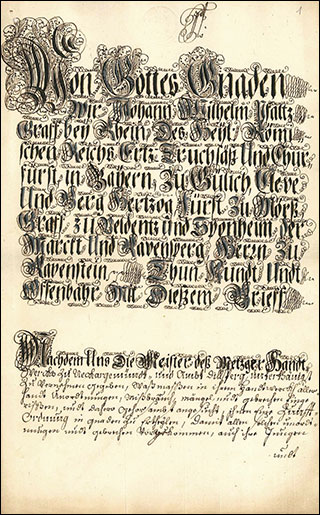 1
Von Gottes Gnaden
Wir Johann Wilhelm Pfaltz
Graff bey Rhein Des Heyl: Römi
schen Reichs Ertz Truchsäß Und Chur
fürst, in Bayern Zu Gülich Cleve
Und Berg Hertzog Fürst Zu Mörß
Graff zu Veldentz und Sponheim der
Marck Und Ravenperg Herr Zu
Ravenstein Thun Kundt Undt
Offenbahr Mit Dießem Brieff
Nachdem Uns Die Meister deß Metzger Handt
wercks zu Neckargemündt und Ambt
Zu Vernehmen gegeben, Waßmaßen in ihrem Handtwerck aller
handt Unordnungen, Mißbräuch, mängel undt gebrechen einge
rissen, undt dahero gehorsambst angesucht, ihnen eine Zunfft
Ordnung in gnaden zu Ertheilen, Damit allen solchen unord
nungen undt gebrechen auch ihre Jungen
undt